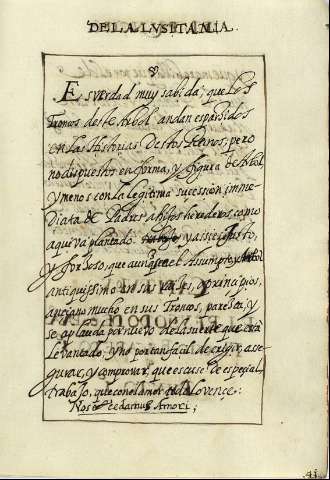 DE LA LVSITANIA.
Es verdad muy sabida; que los
Troncos deste Arbol andan esparsidos
en las Historias destos Reinos, pero
no dispuestos en forma, y figura de Arbol
y menos con la legitima sucession imme
diata de Padres a hijos herederos, como
aqui va plantado y assi es justo,
y forzoso, que aunque el Assumpto, y Arbol
antiquissimo en sus raises, o principios,
aqui no mucho en sus Troncos, paresca, y
se aplauda por nuevo de la suerte que está
levantado, y no por tan facil de erigir, asse
gurar, y comprovar, que escuse de especial
trabajo, que con el amor todo lo vençe:
Nos cedamus Amori;
41